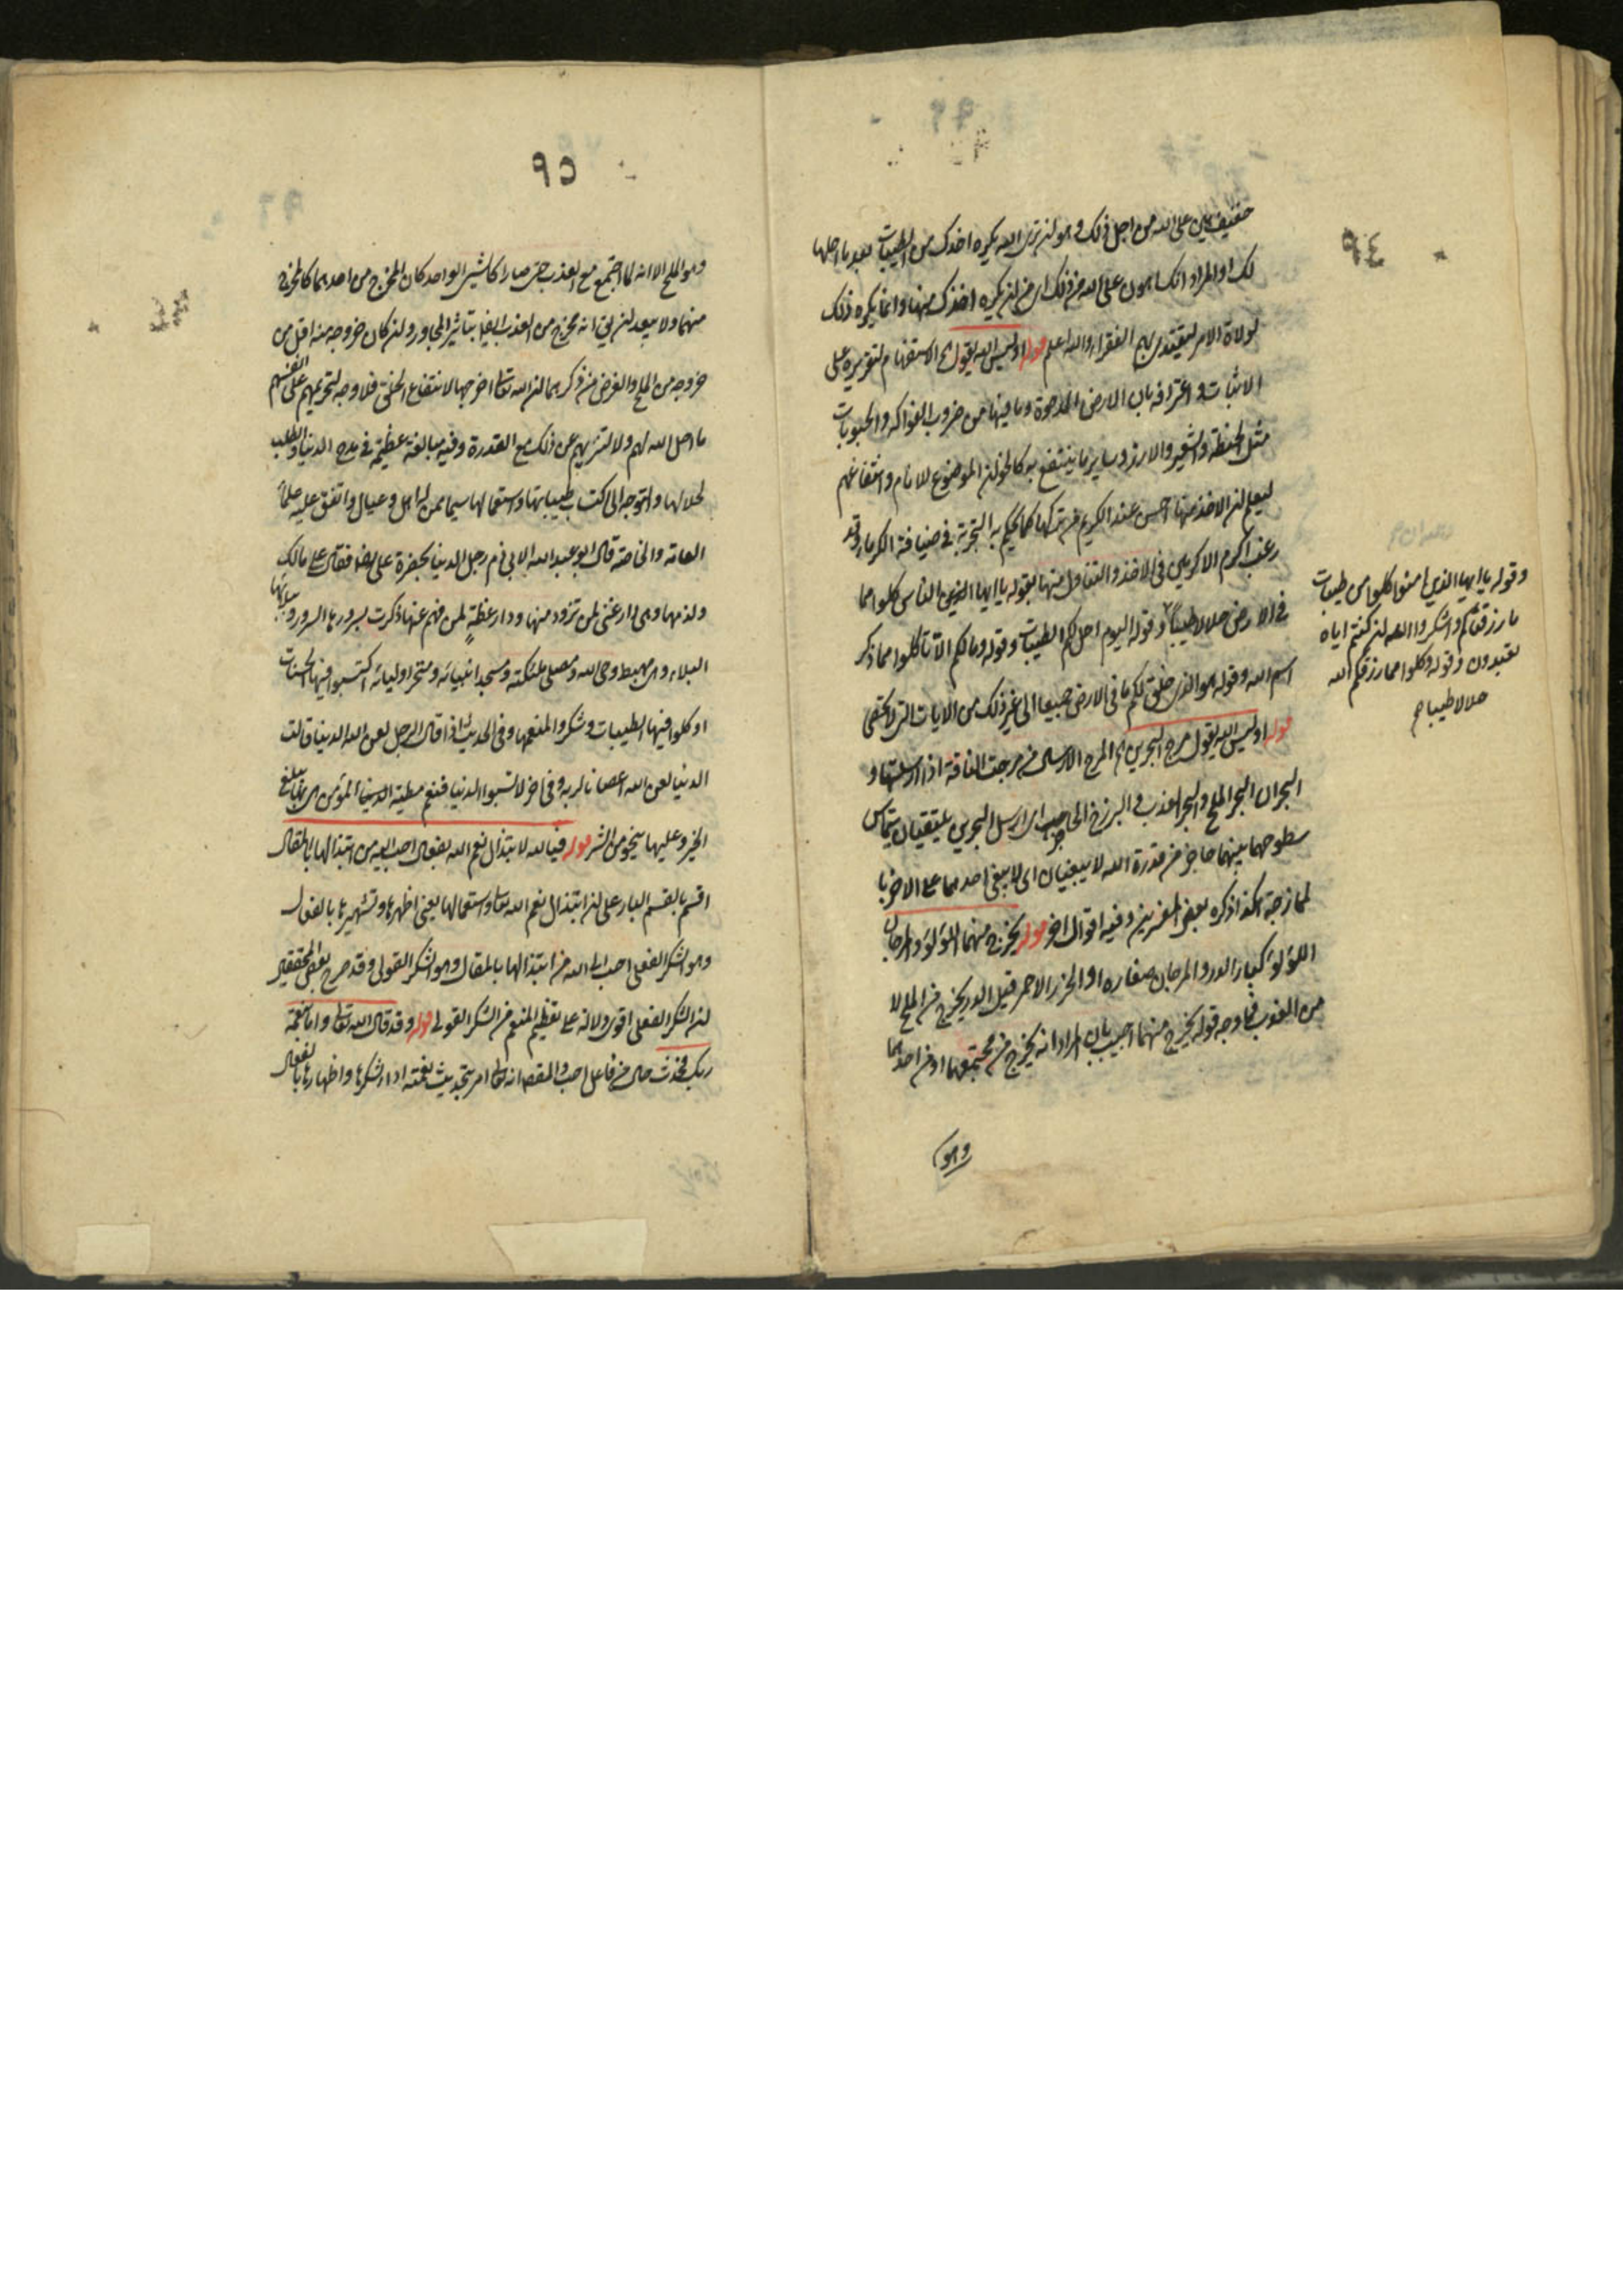 ٩٤
حقيق هين على الله من اجل ذلك وهو لن ترى الله يكره اخذك من الطيبات بعد ما احلها
لك او المراد انك اهون على الله من ذلك اى من ان يكره اخذك منها وانما يكره ذلك
لولاة الامر ليقتدى بهم الفقراء والله اعلم قوله اوليس الله يقول اه الاستفهام لتقريره على
الاثبات واعترافه بان الارض المدحوة وما فيها من ضروب الفواكه والحبوبات
مثل الحنطة والشعير والارز وساير ما ينتفع به كالخوان الموضوع للانام وانتفاعهم
ليعلم ان الاخذ منها احسن عند الكريم من تركها كما يحكم به التجربة في ضيافة الكرماء وقد
رغب اكرم الاكرمين في الاخذ والتناول منها بقوله يا ايها الناس كلوا مما
في الارض حلالا طيبا وقوله اليوم احل لكم الطيبات وقوله ومالكم الا تاكلوا مما ذكر
اسم الله وقوله هو الذى خلق لكم ما في الارض جميعا الى غير ذلك من الايات التى لا تحصى
قوله اوليس الله يقول مرج البحرين اه المرج الارسال من مرجت الناقة اذا ارسلتها و
البحران البحر الملح والبحر العذب والبرزخ الحاجب اى ارسل البحرين يلتقيان يتماس
سطوحهما بينهما حاجز من قدرة الله لا يبغيان اى لا يبغى احدهما على الاخر با
لممازجة هكذا ذكره بعض المفسرين وفيه اقوال اخر قوله يخرج منهما اللؤلؤ والمرجان
اللؤلؤ كبار الدر والمرجان صغاره او الخرز الاحمر قيل الدر يخرج من الملح لا
من العذب فما وجه قوله يخرج منهما اجيب بان المراد انه يخرج من مجتمعهما او من احدهما
وهو
وقوله يا ايها الذين امنوا كلوا من طيبات
ما رزقناكم واشكروا الله ان كنتم اياه
تعبدون وقوله وكلوا مما رزقكم الله
حلالا طيبا
٩٥
وهو الملح الا انه لما اجتمع مع العذب حتى صارا كالشئ الواحد كان المخرج من احدهما كالمخرج
منهما ولا يبعد ان يق انه يخرج من العذب ايضا بتاثير المجاور وان كان خروجه منه اقل من
خروجه من الملح والغرض من ذكرهما ان الله تعالى اخرجها لانتفاع الخلق فلا وجه لتحريمهم على انفسهم
ما احل الله لهم ولا لتنزيههم عن ذلك مع القدرة وفيه مبالغة عظيمة في مدح الدنيا وطلب
لحلالها والتوجه الى اكتساب طيباتها واستعمالها سيما لمن له اهل وعيال واتفق عليه علماء
العامة والخاصة قال ابو عبد الله الابي ذم رجل الدنيا بحضرة على رض فقال على مالك
ولذمها وهى دار غنى لمن تزود منها ودار عظة لمن فهم عنها ذكرت بسرورها السرور وببلائها
البلاء وهى مهبط وحى الله ومصلى ملئكته ومسجد انبيائه ومتجر اوليائه اكتسبوا فيها الحسنات
او كلوا فيها الطيبات وشكروا المنعم وفي الحديث اذا قال الرجل لعن الله الدنيا قالت
الدنيا لعن الله اعصانا لربه وفي اخر لا تسبوا الدنيا فنعم مطية الدنيا المؤمن بها يبلغ
الخير وعليها ينجو من الشر قوله فبالله لابتذال نعم الله بالفعال احب اليه من ابتذالها بالمقال
اقسم بالقسم البار على ان ابتذال نعم الله تعالى واستعمالها يعنى اظهارها وتشهيرها بالفعل
وهو الشكر الفعلى احب الى الله من ابتذالها بالمقال وهو الشكر القولى وقد صرح بعض المحققين
ان الشكر الفعلى اقوى دلالة على تعظيم المنعم من الشكر القولى قوله وقد قال الله تعالى واما بنعمة
ربك فحدث حال من فاعل احب والمقصود انه تعالى امر بتحديث نعمته اداء لشكرها واظهارها بالفعال